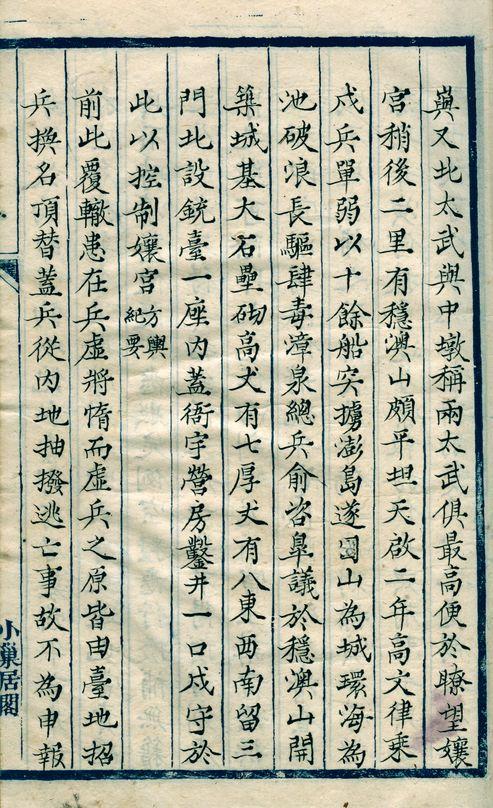 與又北太武與中墩稱兩太武俱最高便於瞭望孃
宮稍後二里有穩澳山頗平坦天啟二年高文律乘
戍兵單弱以十餘船突擄澎島遂因山為城環海為
池破浪長驅肆毒漳泉總兵俞咨臯議於穩澳山開
築城基大石壘砌高丈有七厚丈有八東西南留三
門北設銃臺一座內蓋衙宇營房鑿井一口戍守於
此以控制孃宮方輿紀要
前此覆轍患在兵虛將惰而虛兵之原皆由臺地招
兵換名頂替蓋兵從內地抽撥逃亡事故不為申報
小巢居閣